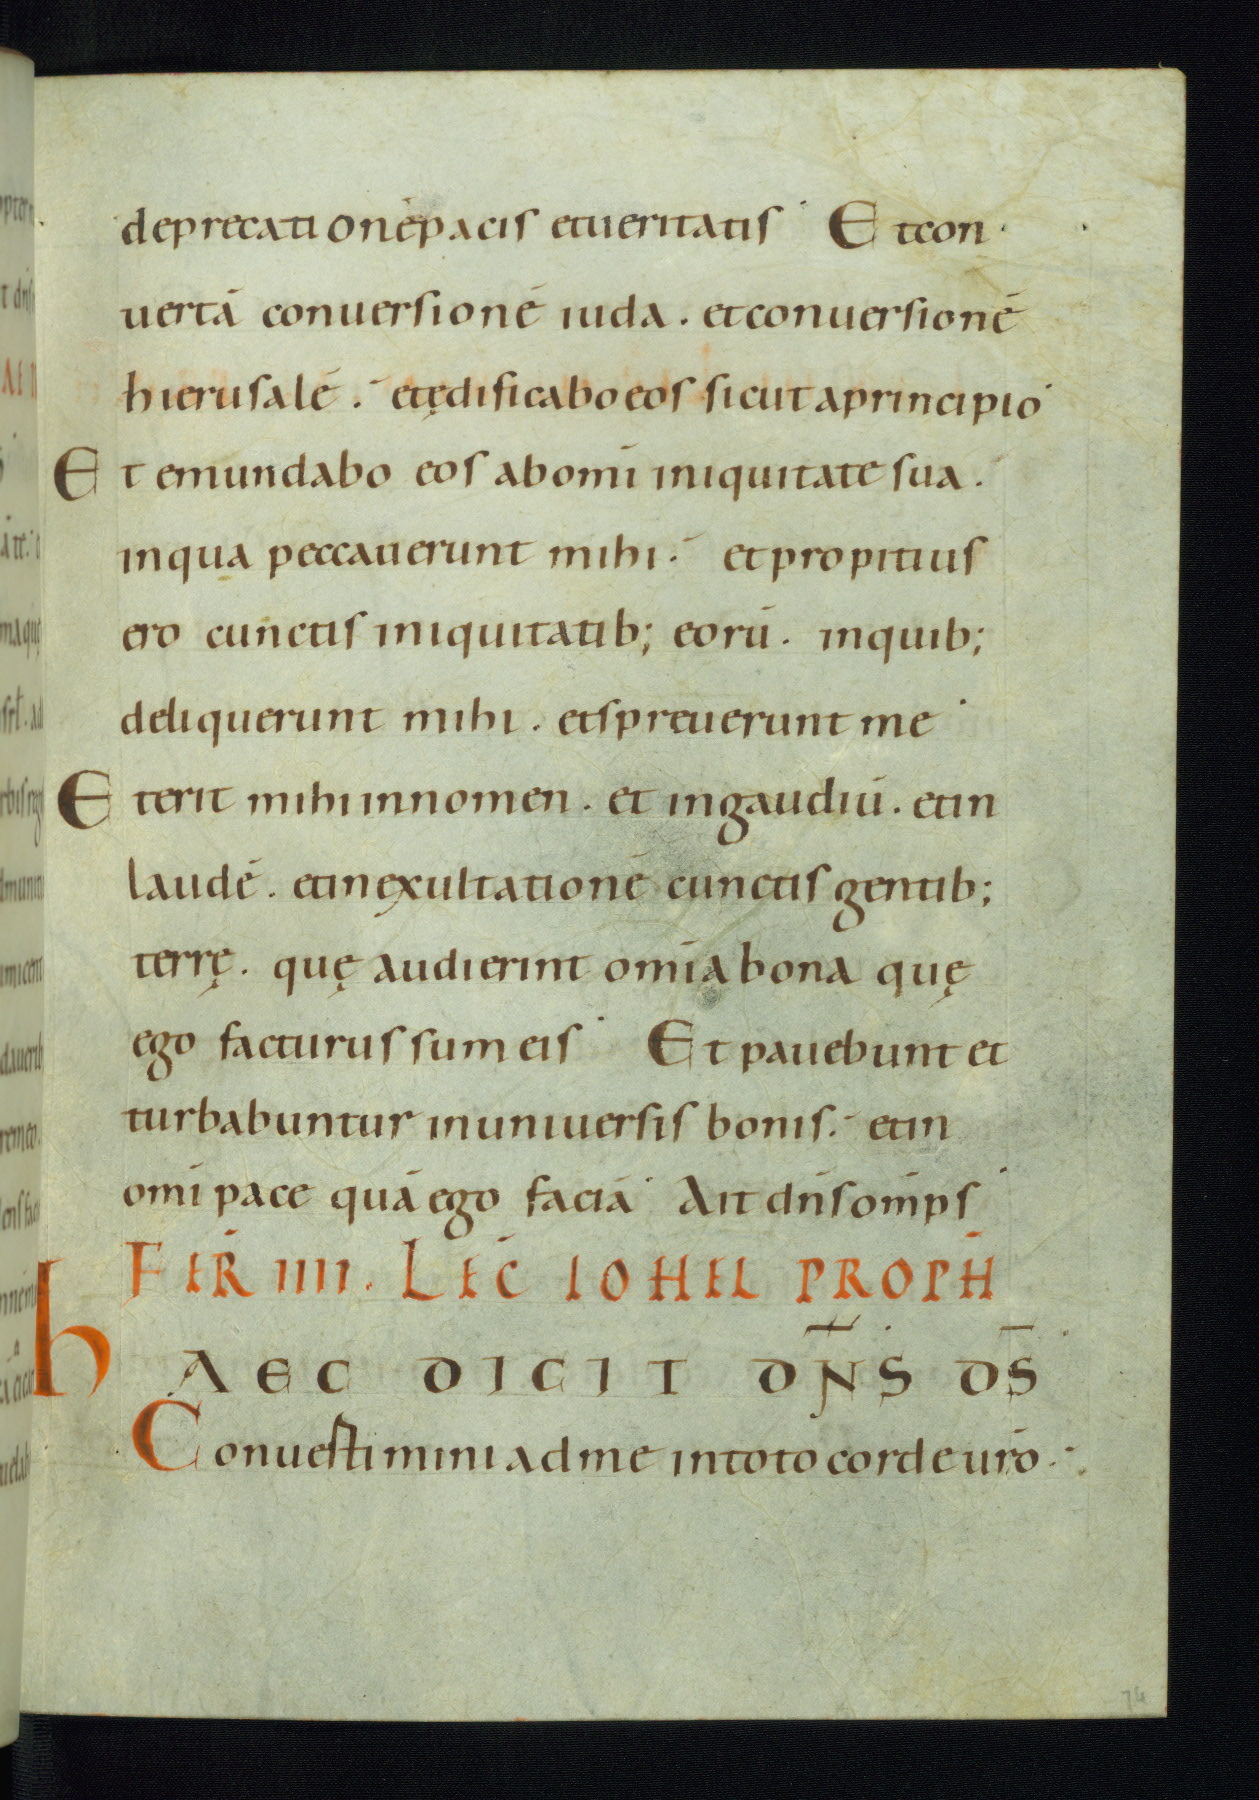 deprecationē pacis et ueritatis Et con
uertā conuersionē iuda. et conuersionē
hierusalē. et ędificabo eos sicut a principio
Et emundabo eos ab omī iniquitate sua.
in qua peccauerunt mihi. et propitius
ero cunctis iniquitatib; eorū. in quib;
deliquerunt mihi. et spreuerunt me
Et erit mihi in nomen. et in gaudiū. et in
laudē. et in exultationē cunctis gentib;
terrę. quę audierint omīa bona quę
ego facturus sum eis Et pauebunt et
turbabuntur in uniuersis bonis. et in
omī pace quā ego faciā Ait dn̄s omīps
FER̄ IIII. LEC̄ IOHEL PROPH̄
hAEC DICIT DN̄S D̄S
Conuertimini ad me in toto corde ur̄o.
74